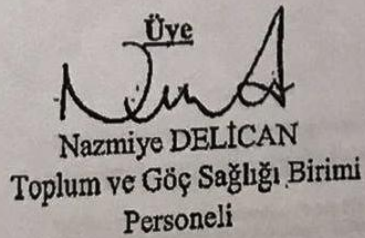 Üye
Nazmiye DELİCAN
Toplum ve Göç Sağlığı Birimi
Personeli